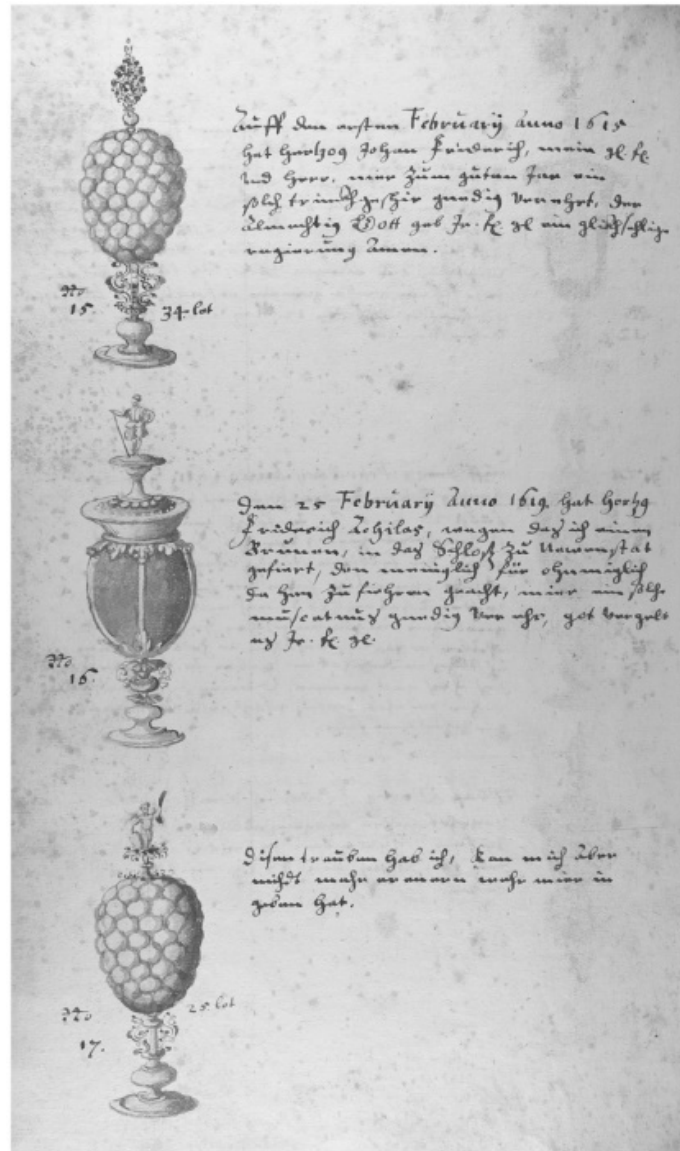 Auff den ersten February Anno 1615
hat hertzog Johan Friderich, mein gl. f.
und herr, mier zum guten Jar ein
solch trinckgeschir gnedig verehrt, der
Almechtig Gott geb Jr. f. gl ein glickschlige
regierung Amen.
No
15.
34 lot
Den 25 February Anno 1619. hat hertzog
Friderich Achilas, wegen das ich einen
Brunen, in das Schloß zu Newenstat
gefiert, den meniglich für ohnmiglich
da hin zu fiehren geacht, mier ein solche
muscatnus gnedig ver ehr, got vergelt
es Jr. f. gl.
No
16.
Disen trauben hab ich, kan mich aber
nicht mehr erenern wehr mier in
geben hat.
No
17.
25 lot